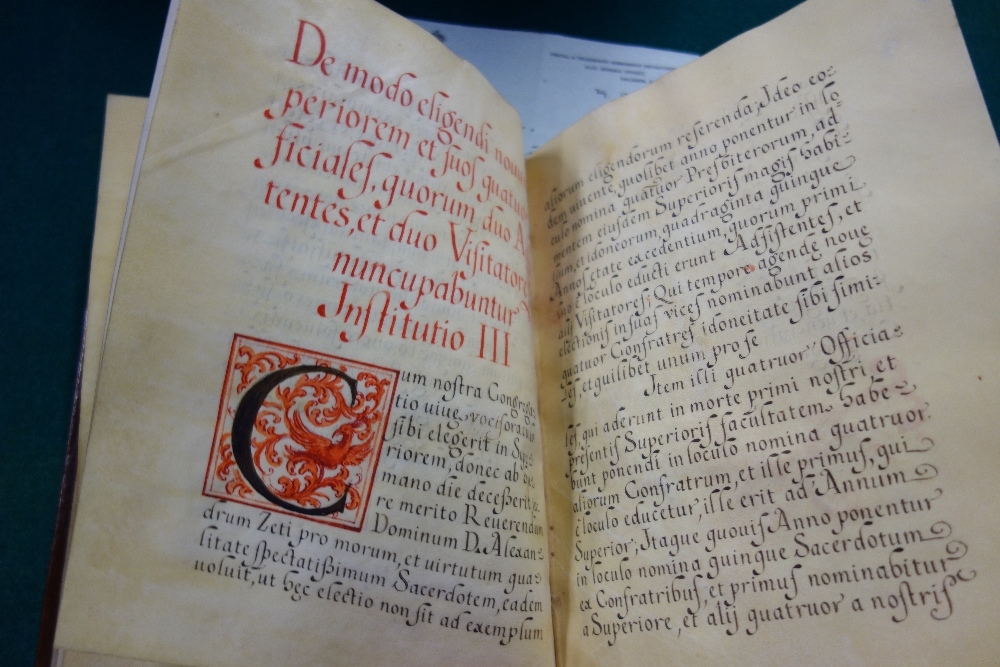 De modo eligendi nouu
periorem et suos quatuo
ficiales, quorum duo A
tentes, et duo Visitatore
nuncupabuntur
Institutio III
Cum nostra Congrega-
tio uiue
sibi elegerit in Su
riorem, donec ab
mano die decesserit
re merito Reuerendum
Dominum D. Alexan-
drum Zeti pro morum, et uirtutum qua-
litate spectatissimum Sacerdotem, eadem
uoluit, ut hęc electio non sit ad exemplum
aliorum eligendorum referenda; Ideo eo-
dem uiuente, quolibet anno ponentur in lo-
culo nomina quatuor Presbiterorum, ad
mentem eiusdem Superioris magis habi-
lium, et idoneorum, quadraginta quinque
Annos ętate excedentium, quorum primi
duo è loculo educti erunt Assistentes, et
alij Visitatores; Qui tempore agendę nouę
electionis in suas vices nominabunt alios
quatuor Confratres idoneitate sibi simi-
les, et quilibet unum pro se
Item illi quatruor Officia-
les, qui aderunt in morte primi nostri, et
presentis Superioris facultatem habe-
bunt ponendi in loculo nomina quatruor
aliorum Confratrum, et ille primus, qui
è loculo educetur, ille erit ad Annum
Superior; Itaque quouis Anno ponentur
in loculo nomina quinque Sacerdotum
ex Confratribus, et primus nominabitur
a Superiore, et alij quatruor a nostris